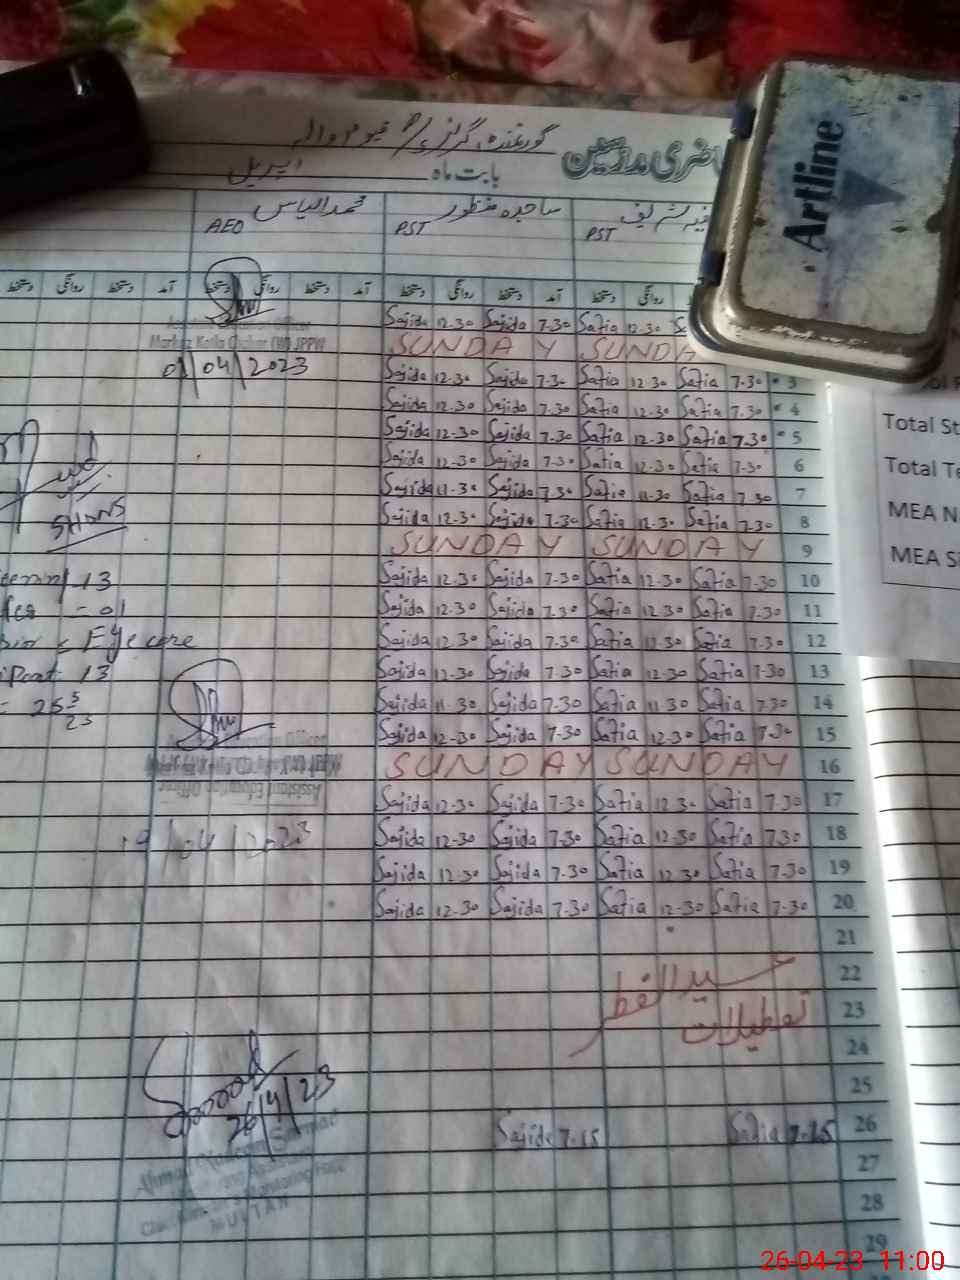 گورنمنٹ گرلز
حاضری مدرسین
بابت ماہ اپریل
محمد الیاس ساجدہ منظور شریف
AEO PST PST
دستخط روانگی دستخط آمد دستخط روانگی دستخط آمد دستخط روانگی دستخط آمد دستخط روانگی
Sajida 12.30 Sajida 7.30 Safia 12.30
SUNDAY SUNDA
Sajida 12.30 Sajida 7.30 Safia 12.30 Safia 7.30 3
Sajida 12.30 Sajida 7.30 Safia 12.30 Safia 7.30 4
Sajida 12-30 Sajida 7-30 Safia 12-30 Safia 7.30 5
Sajida 12-30 Sajida 7-30 Safia 12.30 Safia 7.30 6
Sajida 11-30 Sajida 7.30 Safia 11-30 Safia 7.30 7
Sajida 12-30 Sajida 7-30 Safia 12-30 Safia 7-30 8
SUNDAY SUNDAY 9
Sajida 12.30 Sajida 7-30 Safia 12.30 Safia 7.30 10
Sajida 12.30 Sajida 7.30 Safia 12.30 Safia 7.30 11
Sajida 12.30 Sajida 7.30 Safia 12.30 Safia 7.30 12
Sajida 12.30 Sajida 7.30 Safia 12.30 Safia 7.30 13
Sajida 11.30 Sajida 7.30 Safia 11.30 Safia 7.30 14
Sajida 12-30 Sajida 7.30 Safia 12.30 Safia 7.30 15
SUNDAY SUNDAY 16
Sajida 12.30 Sajida 7.30 Safia 12.30 Safia 7.30 17
Sajida 12-30 Sajida 7.30 Safia 12-30 Safia 7.30 18
Sajida 12.30 Sajida 7.30 Safia 12.30 Safia 7.30 19
Sajida 12-30 Sajida 7.30 Safia 12-30 Safia 7.30 20
21
عیدالفطر 22
تعطیلات 23
24
25
Sajida 7.15 Safia 7.15 26
27
28
29
Assistant Education Officer
Markaz Kotla (W) JPPW
01/04/2023
13
= 01
Eye care
13
Assistant Education Officer
19/04/2023
26/4/23
Ahmad Nadeem
MULTAN
Artline
Total St
Total Te
MEA N
MEA Si
26-04-23 11:00